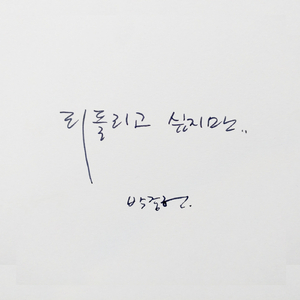 되돌리고 싶지만..
박정현.